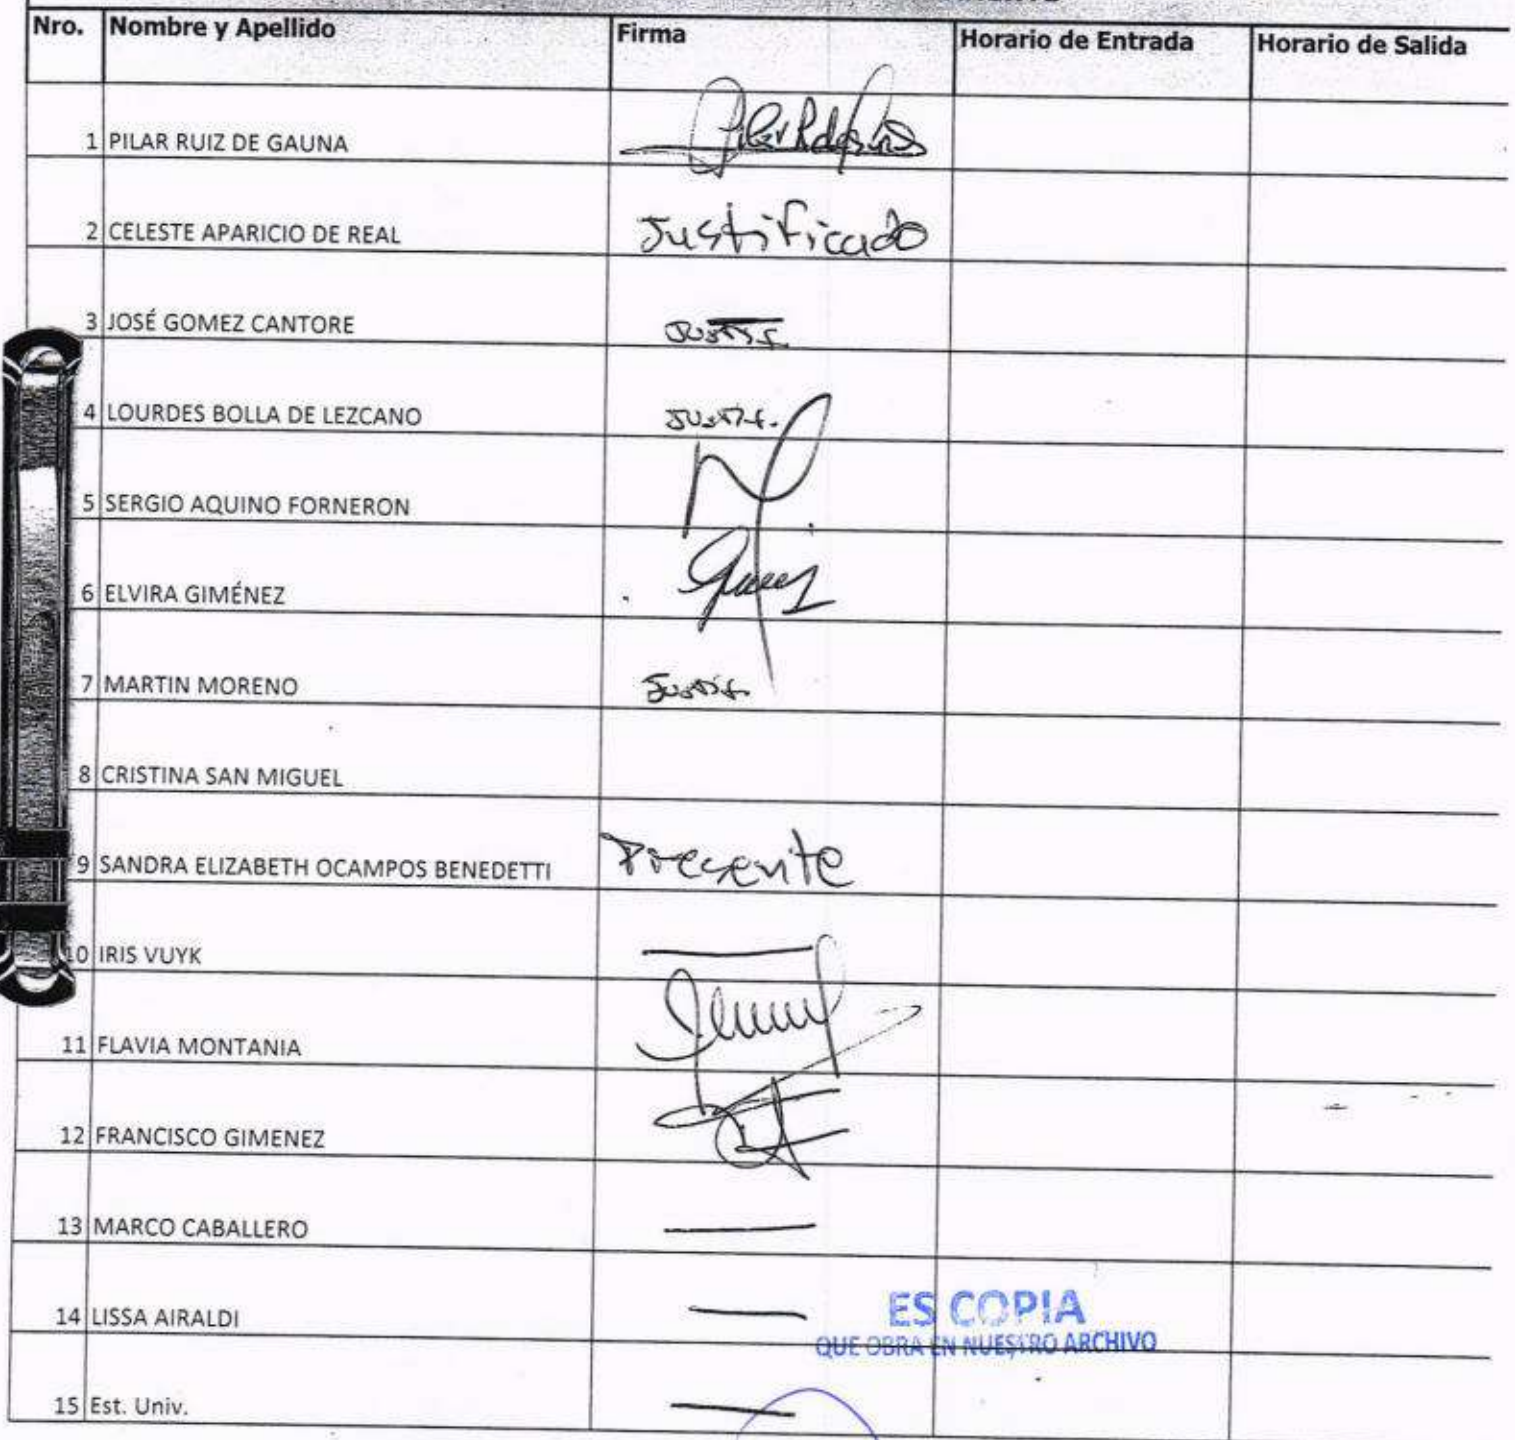 Nro. Nombre y Apellido Firma Horario de Entrada Horario de Salida
1 PILAR RUIZ DE GAUNA
2 CELESTE APARICIO DE REAL Justificado
3 JOSÉ GOMEZ CANTORE Justif
4 LOURDES BOLLA DE LEZCANO Justif.
5 SERGIO AQUINO FORNERON
6 ELVIRA GIMÉNEZ
7 MARTIN MORENO Justif.
8 CRISTINA SAN MIGUEL
9 SANDRA ELIZABETH OCAMPOS BENEDETTI Presente
10 IRIS VUYK
11 FLAVIA MONTANIA
12 FRANCISCO GIMENEZ
13 MARCO CABALLERO
14 LISSA AIRALDI
ES COPIA
QUE OBRA EN NUESTRO ARCHIVO
15 Est. Univ.